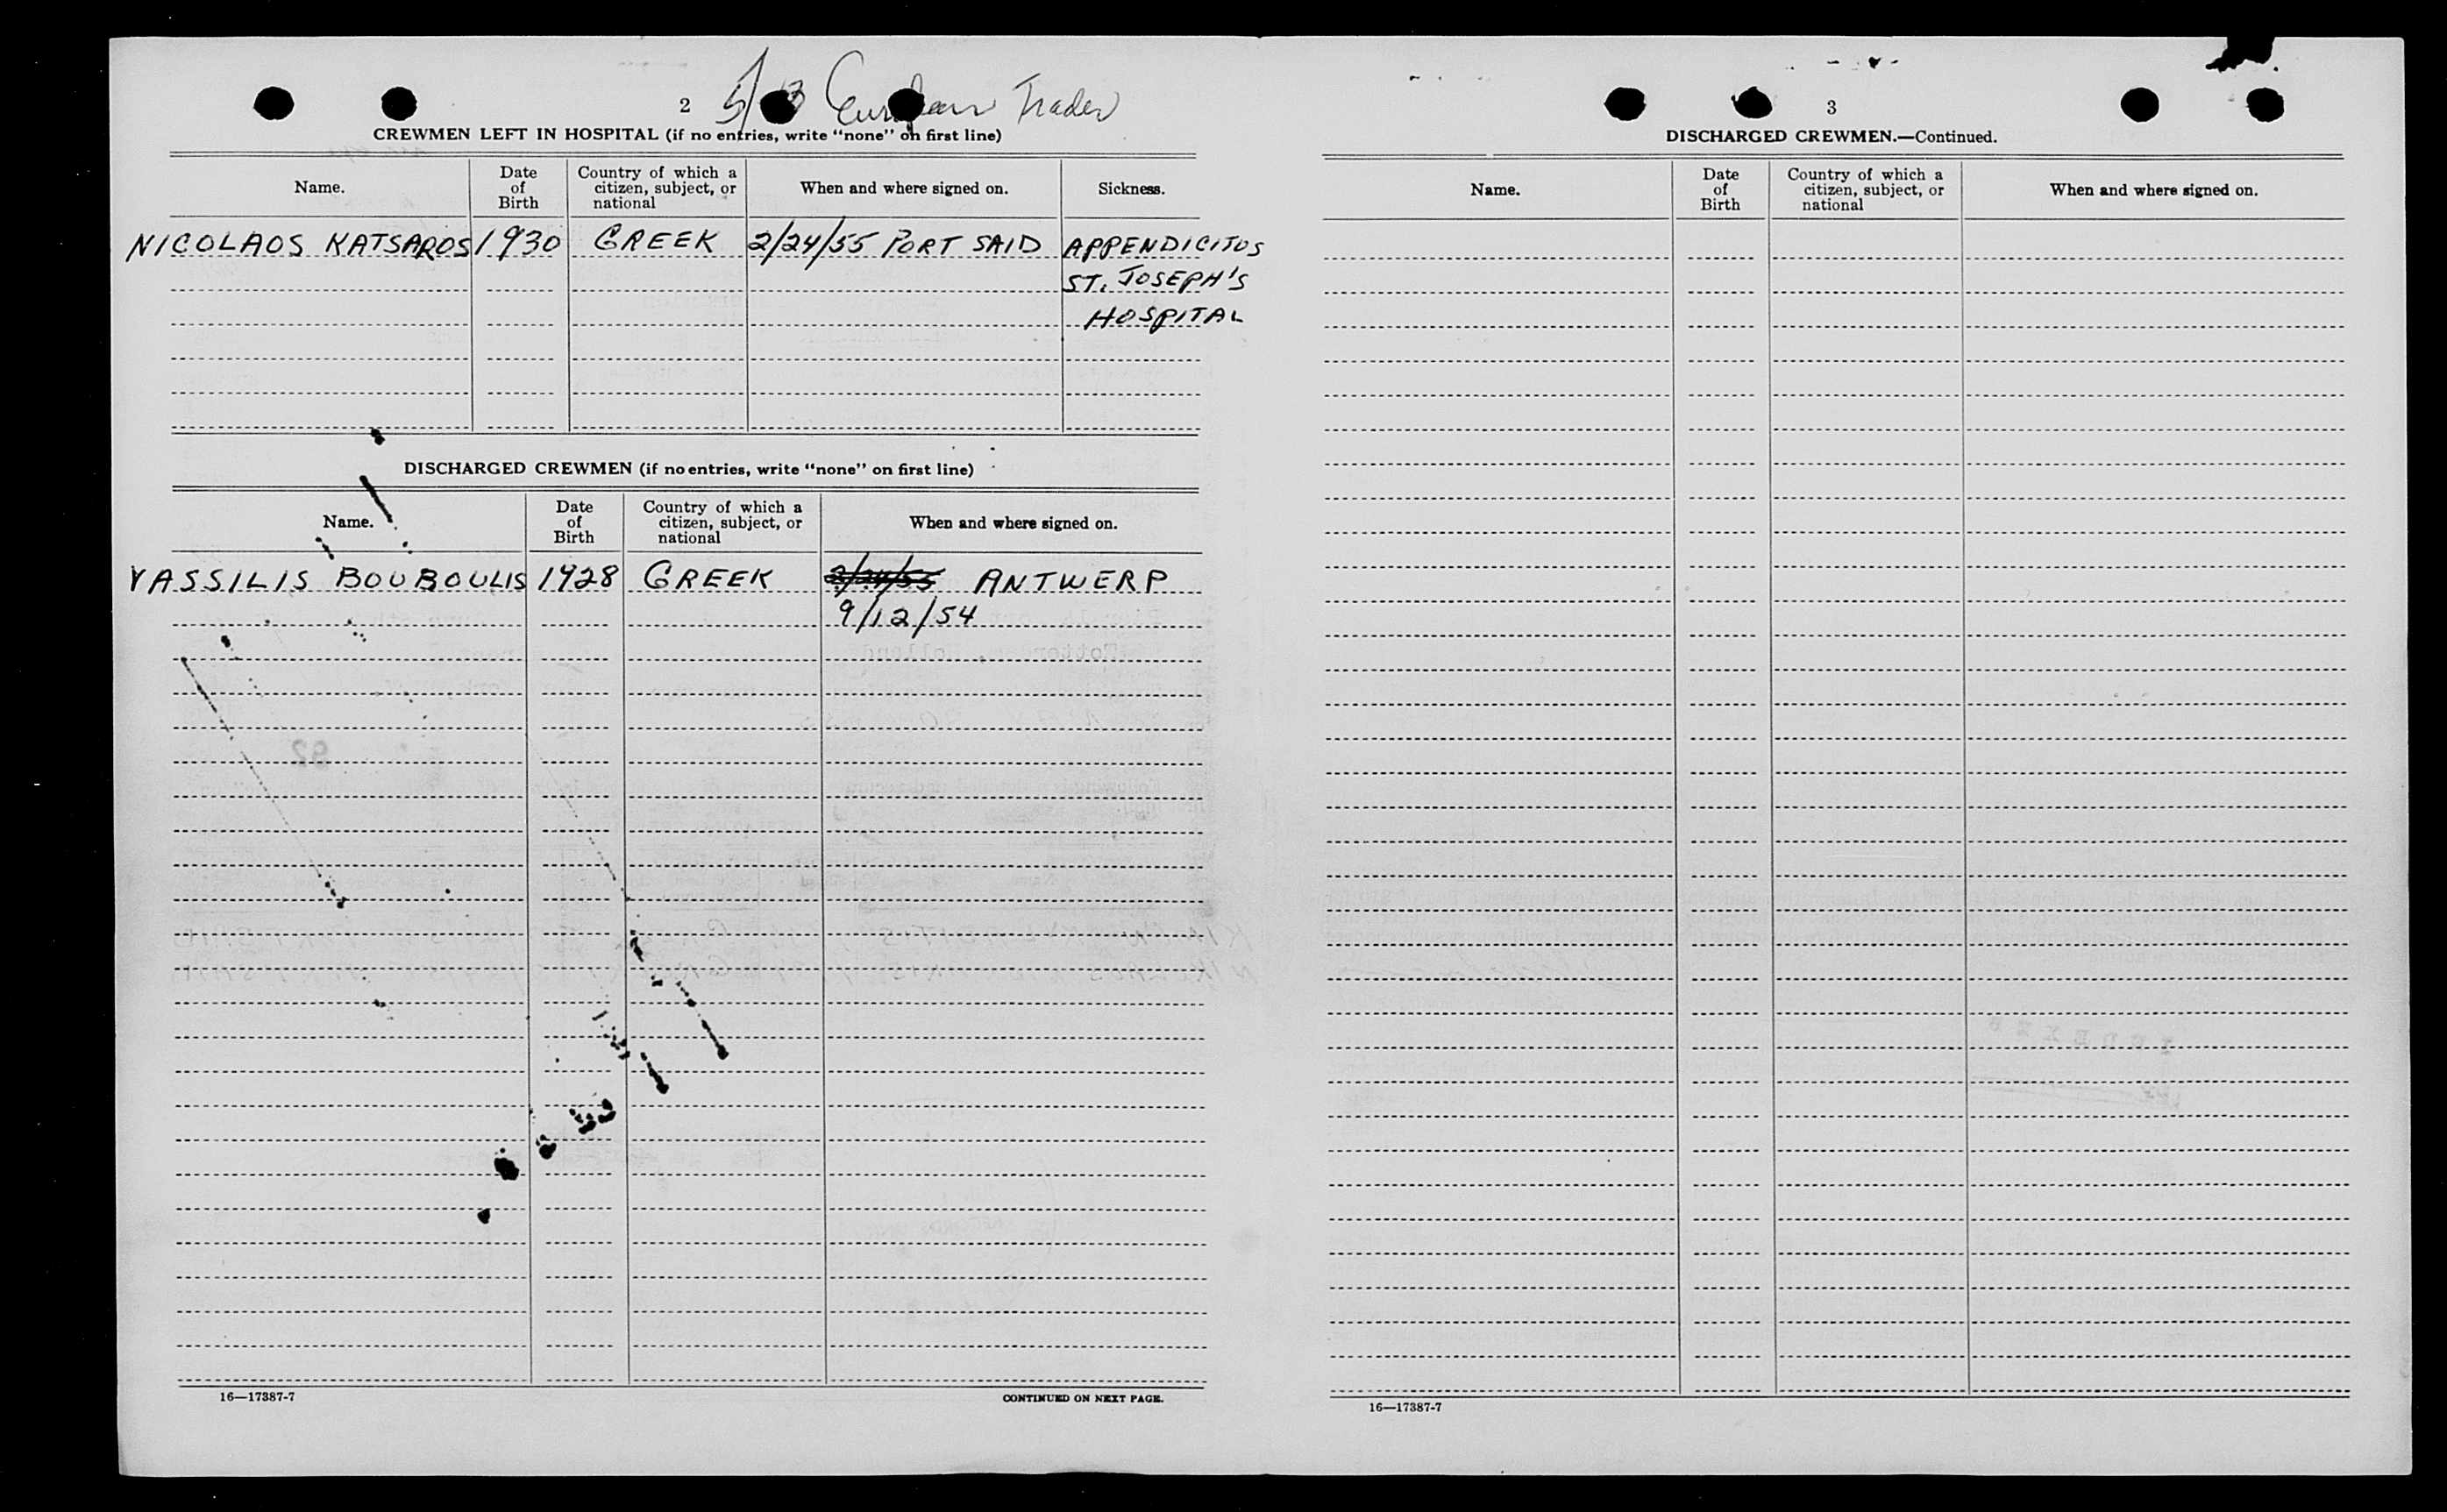 2 European Trader
CREWMEN LEFT IN HOSPITAL (if no entries, write "none" on first line)
Name. Date of Birth Country of which a citizen, subject, or national When and where signed on. Sickness.
NICOLAOS KATSAROS 1930 GREEK 2/24/55 PORT SAID APPENDICITUS
ST. JOSEPH'S
HOSPITAL
DISCHARGED CREWMEN (if no entries, write "none" on first line)
Name. Date of Birth Country of which a citizen, subject, or national When and where signed on.
VASSILIS BOUBOULIS 1928 GREEK 2/24/55 ANTWERP
9/12/54
16—17387-7 CONTINUED ON NEXT PAGE.
3
DISCHARGED CREWMEN.—Continued.
Name. Date of Birth Country of which a citizen, subject, or national When and where signed on.
16—17387-7